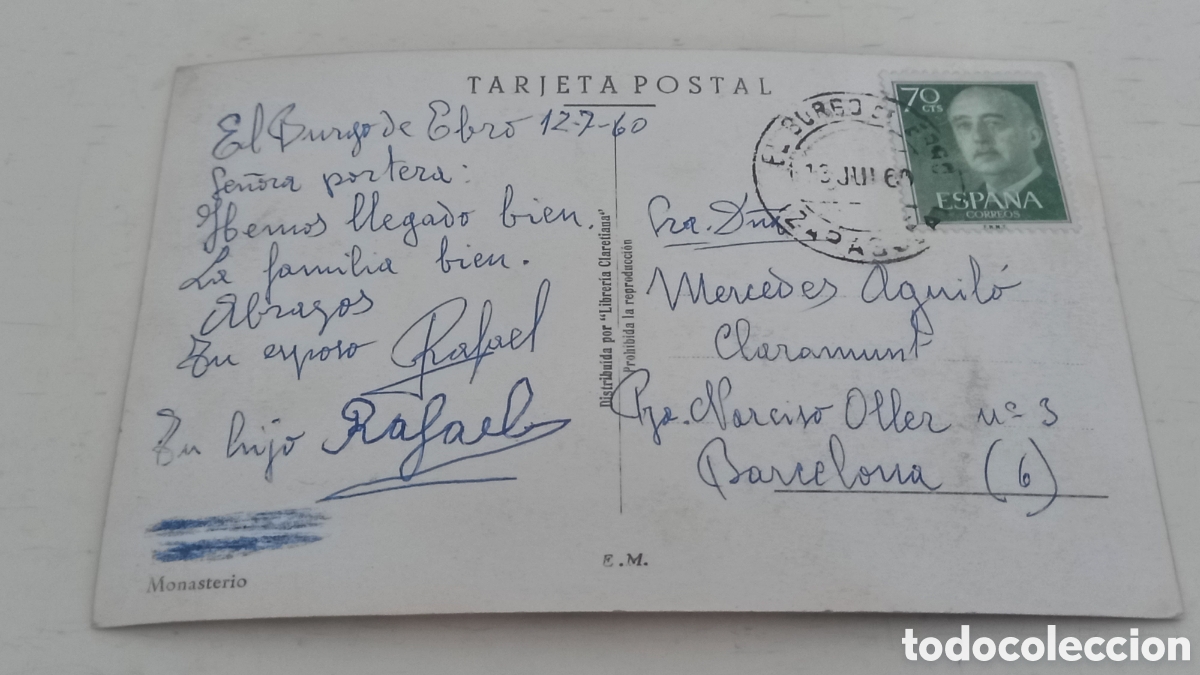 TARJETA POSTAL
El Burgo de Ebro 12-7-60
Señora portera:
Hemos llegado bien.
La familia bien.
Abrazos
Tu esposo Rafael
Tu hijo Rafael
Monasterio
Distribuida por "Librería Claretiana"
Prohibida la reproducción
E.M.
70
CTS
ESPAÑA
CORREOS
EL BURGO DE EBRO
13 JUL 60
ZARAGOZA
Sra. Dña
Mercedes Aguiló
Claramunt
Pza. Narciso Oller nº 3
Barcelona (6)
todocoleccion